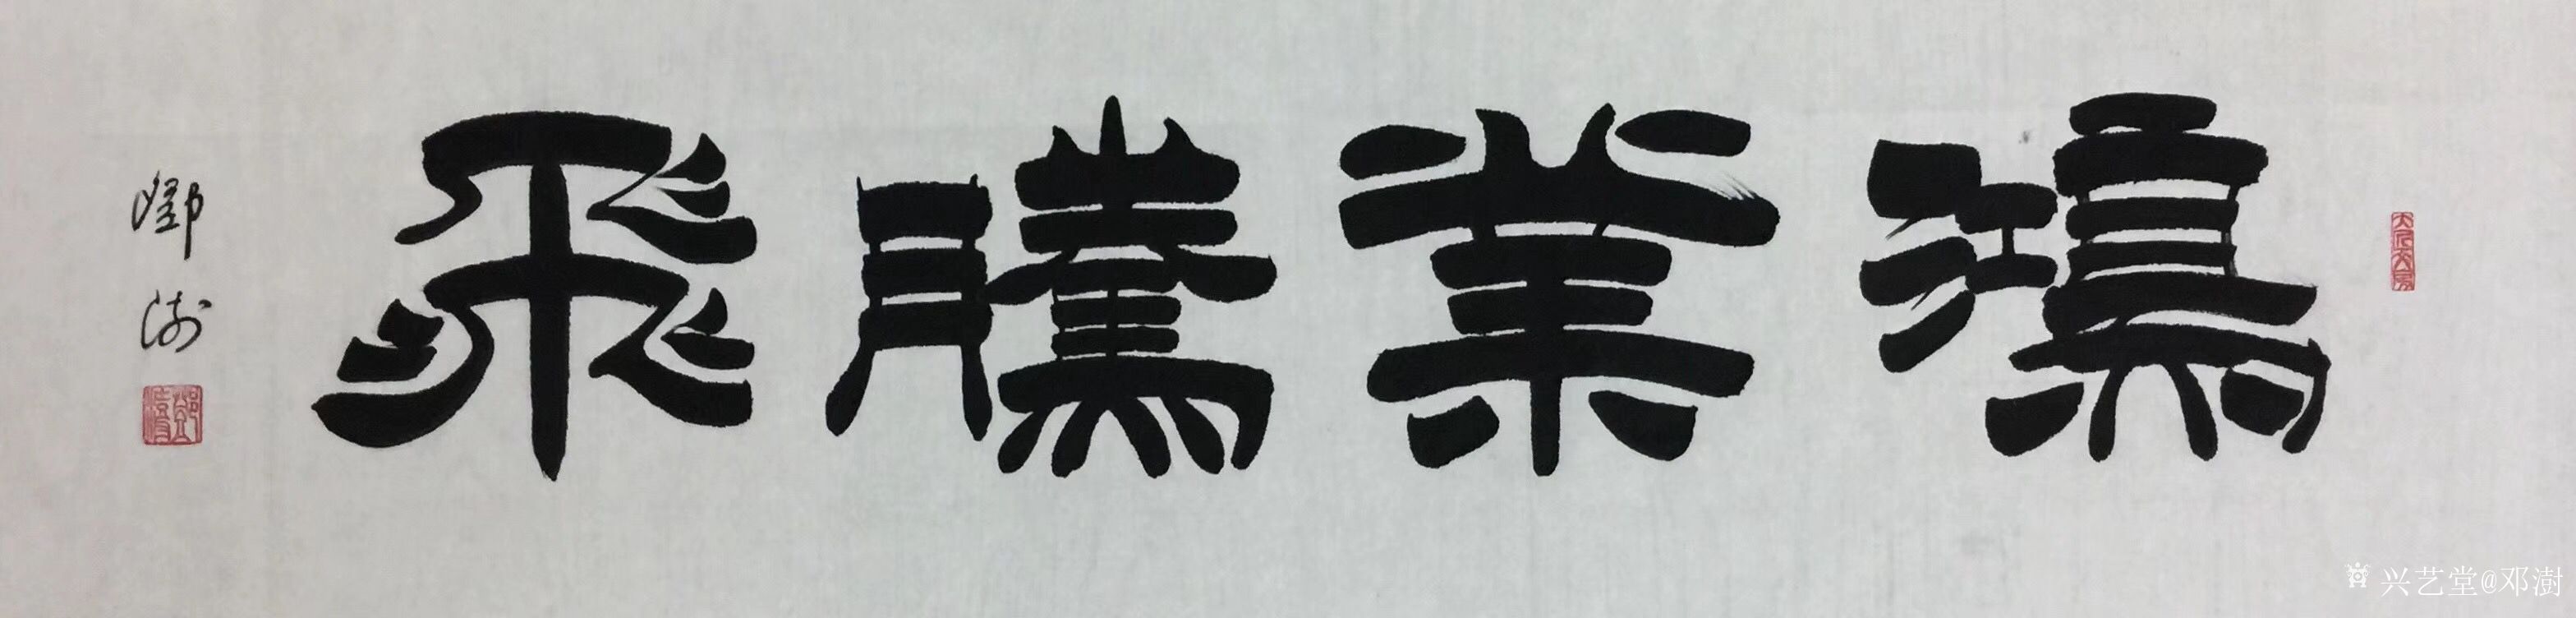 鴻業騰飛
鄧澍
兴艺堂@邓澍